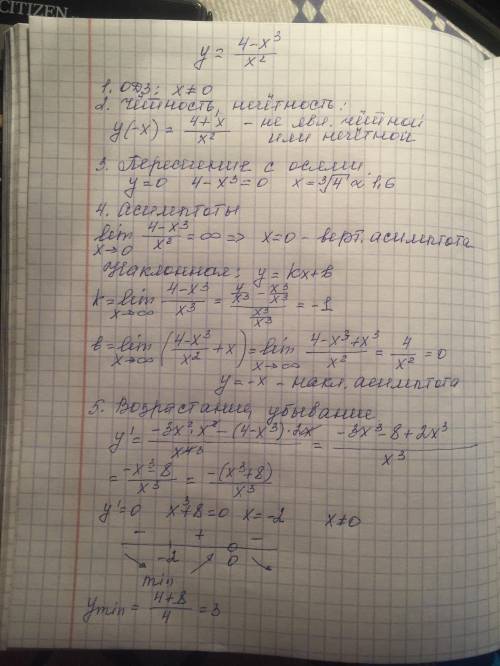 CITIZEN
y = (4-x³)/x²
1. ОДЗ: x≠0
2. Чётность, нечётность:
y(-x) = (4+x³)/x² - не явл. чётной
или нечётной
3. Пересечение с осями.
y=0 4-x³=0 x=³√4 ≈ 1,6
4. Асимптоты
lim x→0 (4-x³)/x² = ∞ => x=0 - верт. асимптота
Наклонная: y=kx+b
k=lim x→∞ (4-x³)/x³ = (4/x³ - x³/x³)/(x³/x³) = -1
b=lim x→∞ ((4-x³)/x² + x) = lim x→∞ (4-x³+x³)/x² = 4/x² = 0
y=-x - накл. асимптота
5. Возрастание, убывание
y' = (-3x²·x² - (4-x³)·2x)/x⁴ = (-3x³-8+2x³)/x³
= (-x³-8)/x³ = -(x³+8)/x³
y'=0 x³+8=0 x=-2 x≠0
- + -
-2 0
min
ymin = (4+8)/4 = 3